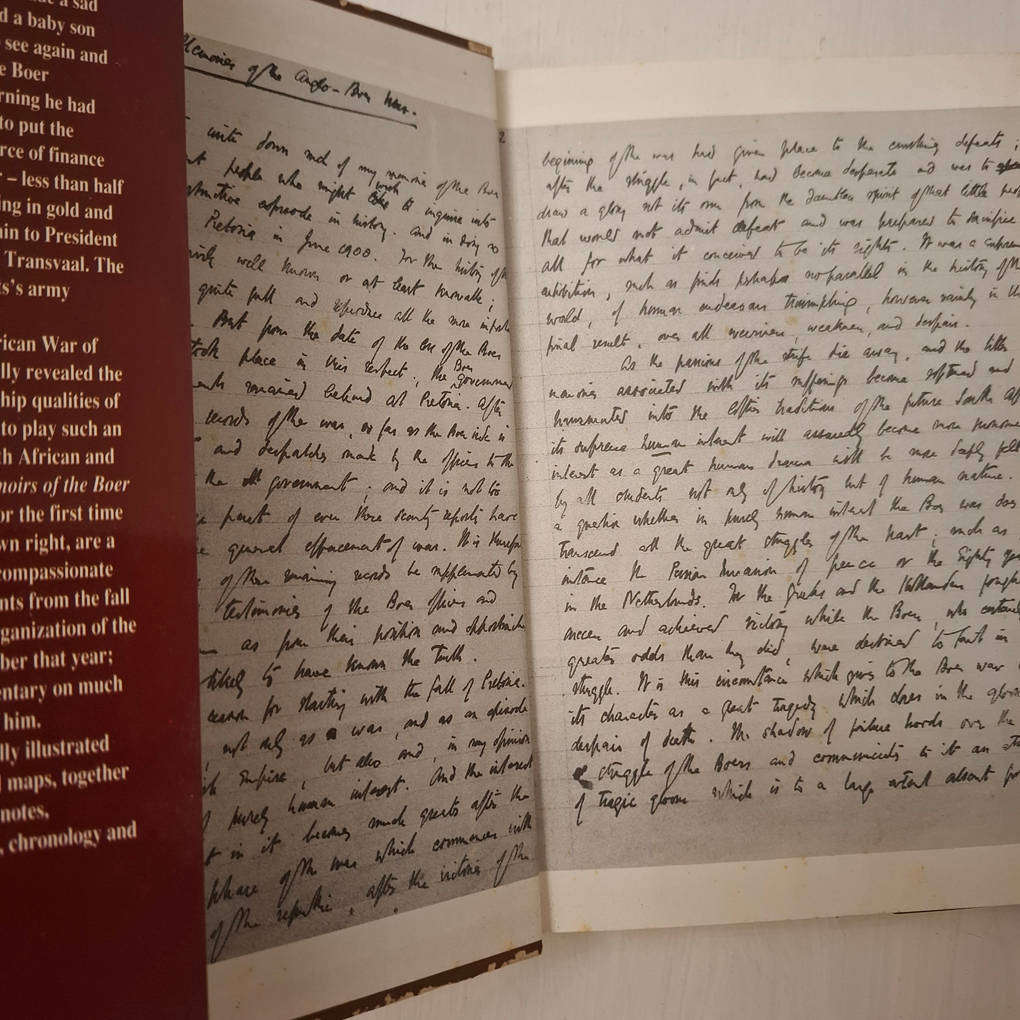 a sad
d a baby son
see again and
e Boer
rning he had
to put the
rce of finance
– less than half
ing in gold and
ain to President
Transvaal. The
ts's army
rican War of
lly revealed the
ship qualities of
to play such an
th African and
moirs of the Boer
or the first time
wn right, are a
compassionate
nts from the fall
rganization of the
ber that year;
entary on much
him.
lly illustrated
maps, together
notes,
, chronology and
Memories of the Anglo-Boer War.
write down much of my memories of the Boer
people who might wish to inquire into
episode in history. and in doing so
Pretoria in June 1900. For the history of the
well known or at least knowable;
quite full and reproduce all the more
But from the date of the of the Boer
took place in this respect; the Boer Government
remained behind at Pretoria. After
records of the war, so far as the Boer side is
and despatches made by the officers to the
the government; and it is not too
part of even these scanty reports have
general effacement of war. It is therefore
of these remaining records be supplemented by
testimonies of the Boer officers and
as from their position and
likely to have known the truth.
reason for starting with the fall of Pretoria.
not only as a war, and as an episode
Empire, but also and, in my opinion
purely human interest. And the interest
in it becomes much greater after the
phase of the war which commences with
of the republics, after the victories of the
2
beginning of the war had given place to the crushing defeats;
after the struggle, in fact, had become desperate and was to
draw a glory not its own from the dauntless spirit of that little
that would not admit defeat and was prepared to sacrifice
all for what it conceived to be its rights. It was a supreme
exhibition, such as finds perhaps no parallel in the history of the
world, of human endeavour triumphing, however vainly in the
final result, over all weariness, weakness, and despair.
As the passions of the strife die away, and the bitter
memories associated with its sufferings become softened and
transmuted into the traditions of the future South
its supreme human interest will assuredly become more
interest as a great human drama will be more deeply felt
by all students not only of history but of human nature.
a question whether in purely human interest the Boer war does
transcend all the great struggles of the past; such as
instance the Persian Invasion of Greece or the Eighty years
in the Netherlands. For the Greeks and the Hollanders fought
success and achieved victory while the Boers, who
greater odds than they did, were destined to fail in
struggle. It is this circumstance which gives to the Boer war
its character as a great tragedy which closes in the gloom
despair of death. The shadow of failure broods over the
struggle of the Boers and communicates to it an
of tragic gloom which is to a large extent absent from